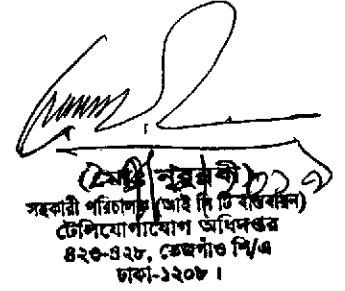 (মোঃ নূরনবী)
সহকারী পরিচালক (আই সি টি বাস্তবায়ন)
টেলিযোগাযোগ অধিদপ্তর
৪২৩-৪২৮, তেজগাঁও শি/এ
ঢাকা-১২০৮।